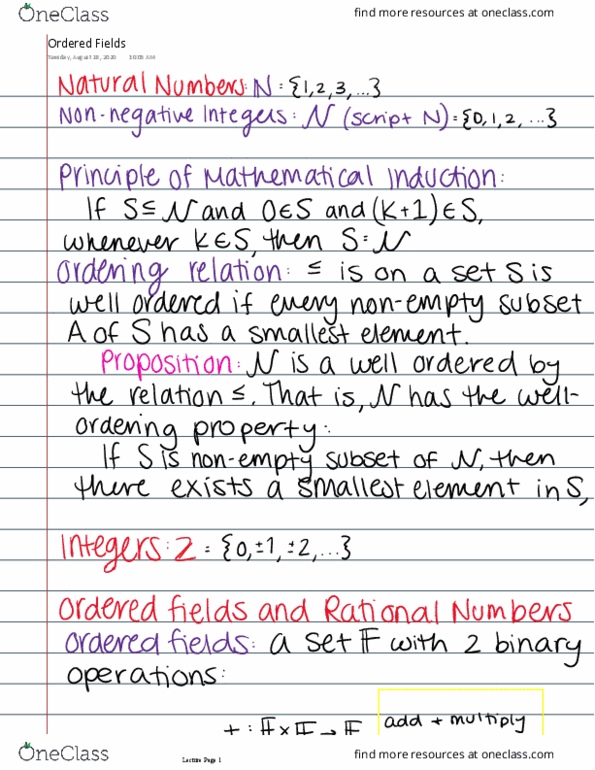 OneClass find more resources at oneclass.com
Ordered Fields
Tuesday, August 18, 2020 10:05 AM
Natural Numbers: N = {1,2,3,...}
Non-negative Integers: N (script N) = {0,1,2, ...}
Principle of Mathematical Induction:
If S ⊆ N and 0 ∈ S and (K+1) ∈ S,
whenever K ∈ S, then S = N
Ordering relation: ≤ is on a set S is
well ordered if every non-empty subset
A of S has a smallest element.
Proposition: N is a well ordered by
the relation ≤. That is, N has the well-
ordering property:
If S is non-empty subset of N, then
there exists a smallest element in S,
Integers: Z = {0, ±1, ±2, ...}
Ordered fields and Rational Numbers
Ordered fields: a set F with 2 binary
operations:
+ : F x F → F add + multiply
OneClass Lecture Page 1 find more resources at oneclass.com